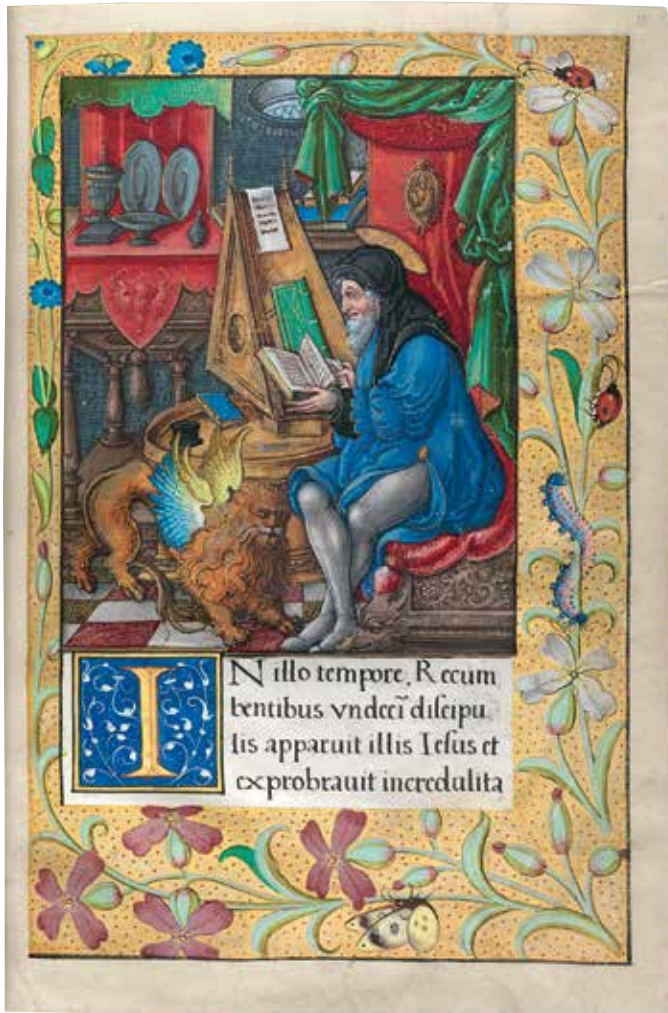 IN illo tempore, Recum
bentibus vndecī discipu
lis apparuit illis Iesus et
exprobrauit incredulita